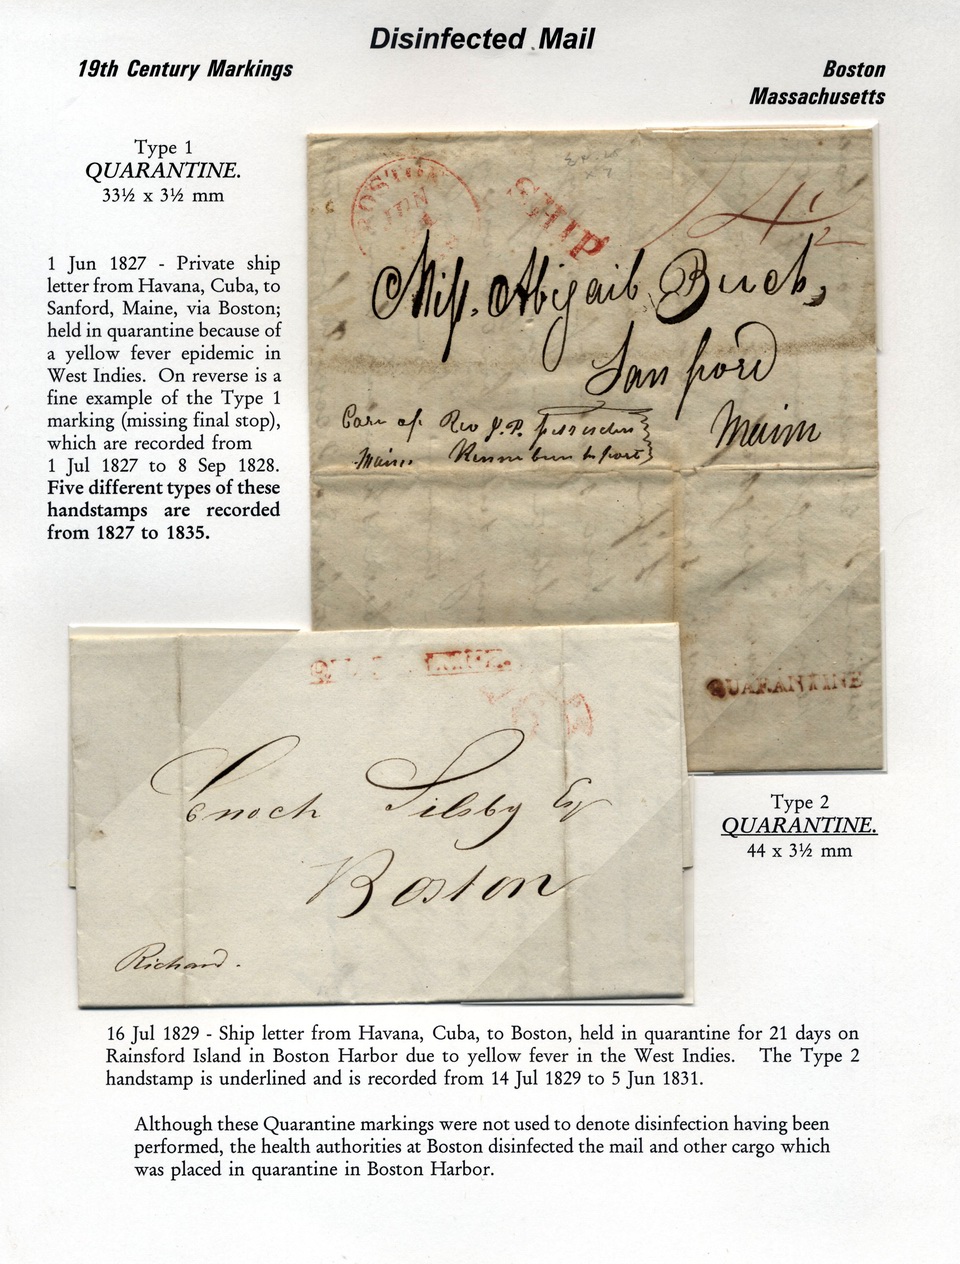 Disinfected Mail
19th Century Markings
Boston
Massachusetts
Type 1
QUARANTINE.
33½ x 3½ mm
1 Jun 1827 - Private ship
letter from Havana, Cuba, to
Sanford, Maine, via Boston;
held in quarantine because of
a yellow fever epidemic in
West Indies. On reverse is a
fine example of the Type 1
marking (missing final stop),
which are recorded from
1 Jul 1827 to 8 Sep 1828.
Five different types of these
handstamps are recorded
from 1827 to 1835.
BOSTON
JUN
SHIP
Miss. Abigail Buck,
Sanford
Maine
Care of Rev J.P.
Maine. Kennebunk port
QUARANTINE
Enoch Silsby Esq
Boston
Richard.
Type 2
QUARANTINE.
44 x 3½ mm
16 Jul 1829 - Ship letter from Havana, Cuba, to Boston, held in quarantine for 21 days on
Rainsford Island in Boston Harbor due to yellow fever in the West Indies. The Type 2
handstamp is underlined and is recorded from 14 Jul 1829 to 5 Jun 1831.
Although these Quarantine markings were not used to denote disinfection having been
performed, the health authorities at Boston disinfected the mail and other cargo which
was placed in quarantine in Boston Harbor.